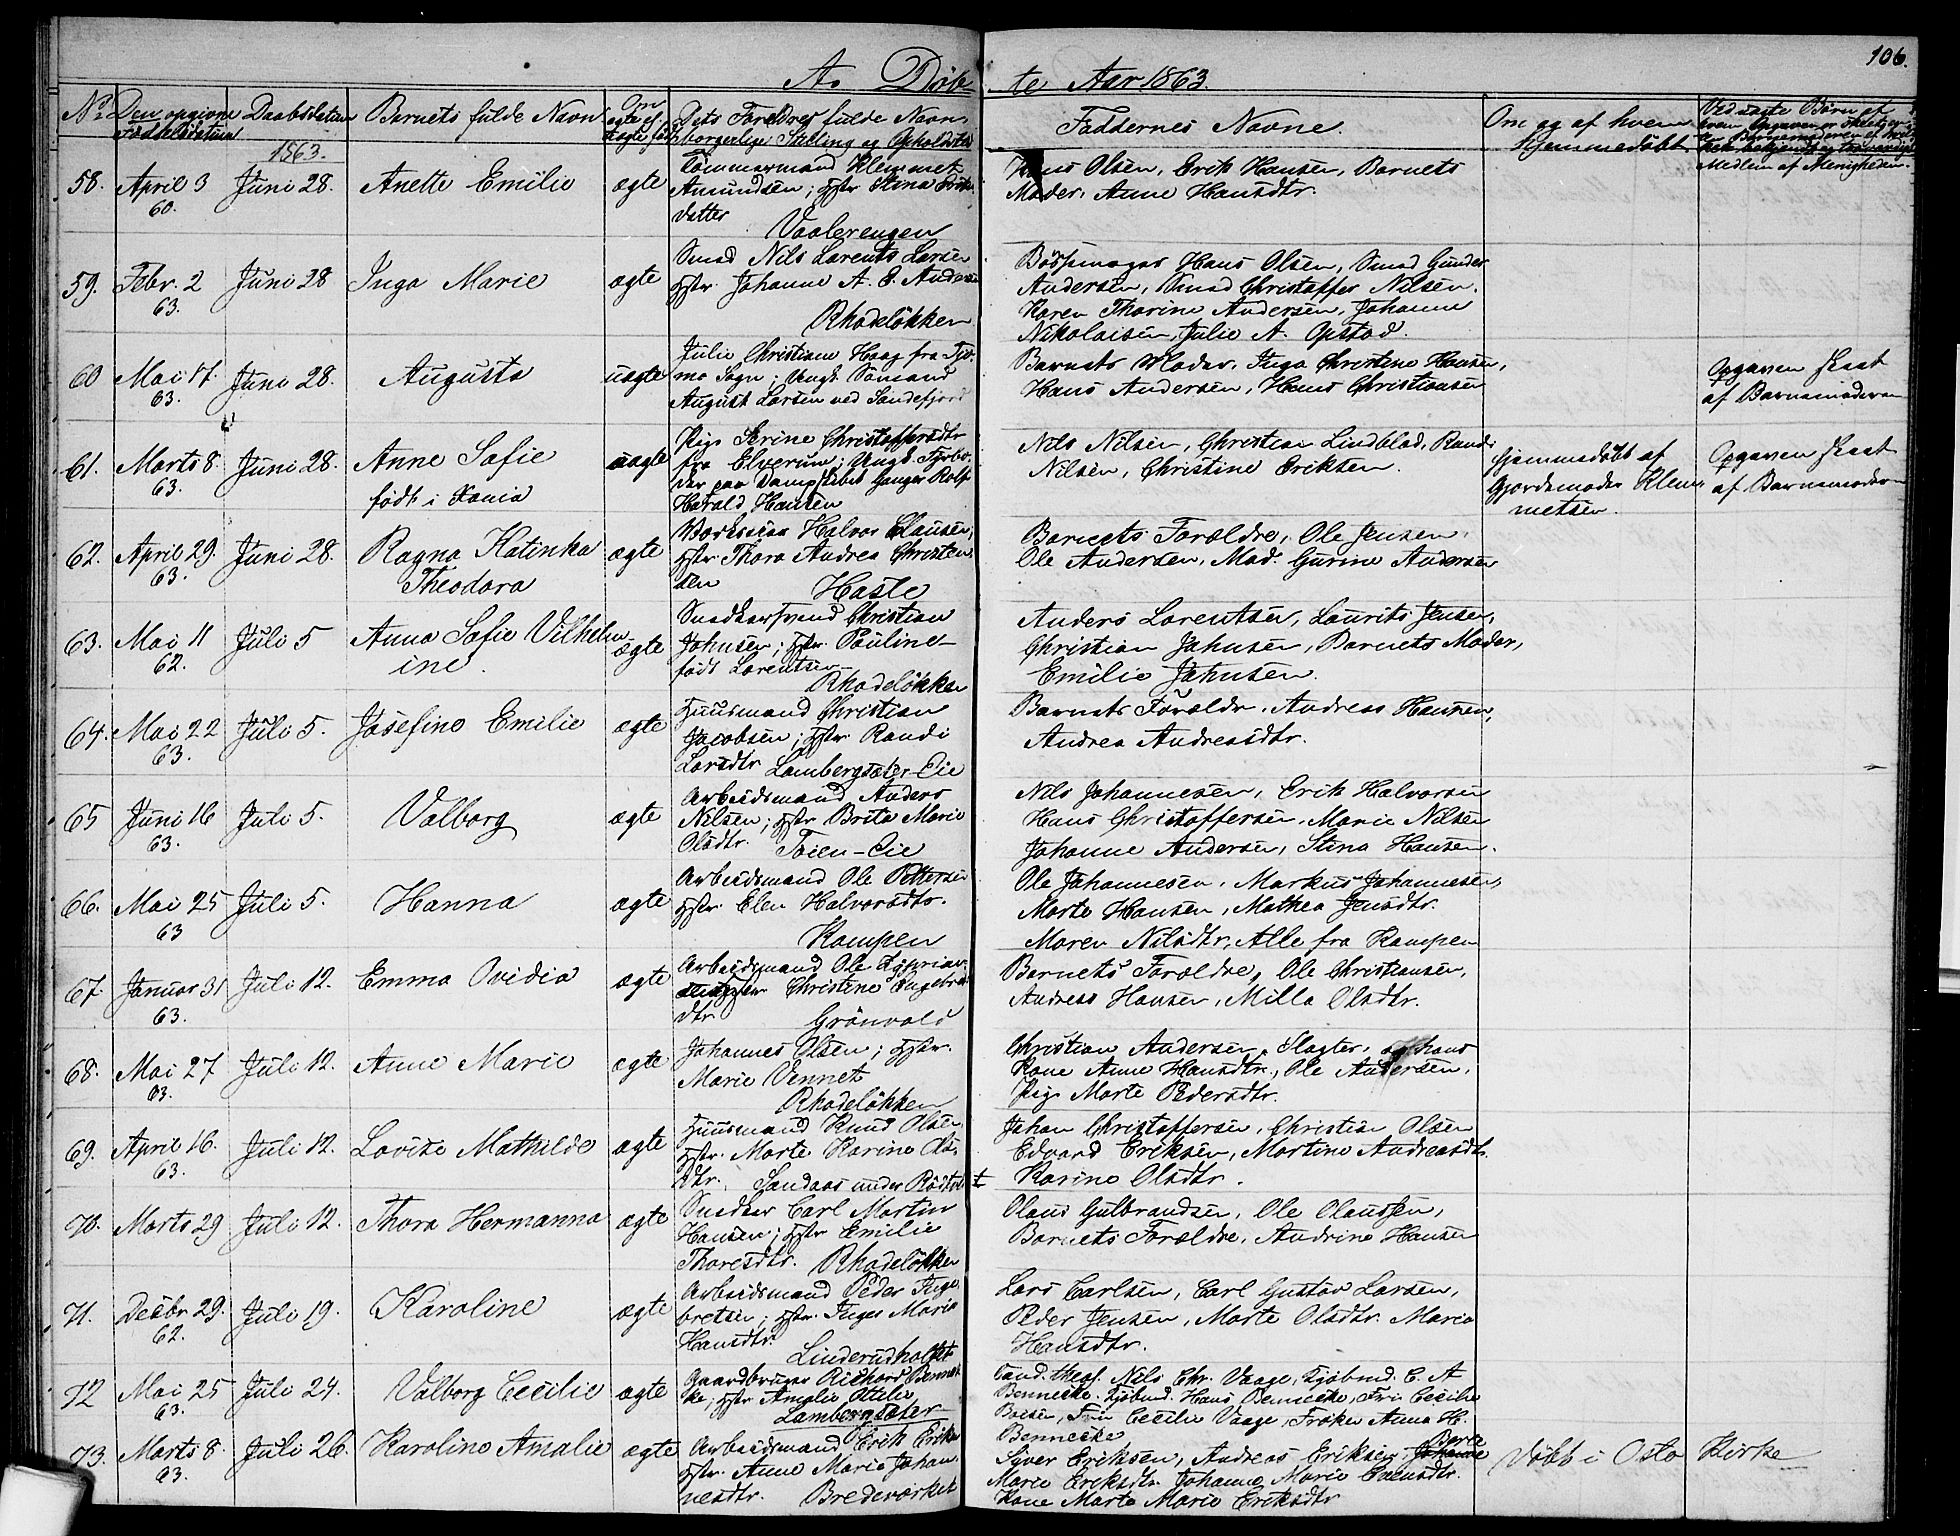 106.
Døbte Aar 1863.
No. Den opgivne Fødselsdatum Daabsdatum Barnets fulde Navn Om ægte el. uægte født Dets Forældres fulde Navn, borgerlige Stilling og Opholdssted Faddernes Navne. Om og af hvem hjemmedøbt.
1863.
58. April 3 60. Juni 28. Anette Emilie ægte
Tømmermand Klemmet
Amundsen; Hstr Stina
datter
Vaalerengen
Hans Olsen, Erik Hansen, Barnets
Moder, Anne Hansdtr.
59. Febr. 2 63. Juni 28 Inga Marie ægte
Smed Nils Lorents Larsen
Hstr. Johanne A. E. Andersen
Rhodeløkken
Bøssemager Hans Olsen, Smed Gunder
Andersen, Smed Christoffer Nilsen.
Karen Thorine Andersen, Johanne
Nikolaisen, Julie A. Opstad.
60 Mai 17. 63. Juni 28. Augusta uægte
Julie Christiane Haag fra
Sogn; Ungk. Sømand
August Larsen ved Sandefjord
Barnets Moder, Inga Christine Hansen,
Hans Andersen, Hans Christiansen
Opgaven skeet
af Barnemoderen
61. Marts 8. 63. Juni 28. Anne Sofie uægte
født i Xania
Pige Serine Christoffersdtr
fra Elverum; Ungk. Fyrbø-
der paa Dampskibet Ganger Rolf
Harald Hansen
Nils Nilsen, Christian Lindblad, Randi
Nilsen, Christine Eriksen.
Hjemmedøbt af
Gjordemoder Klem-
metsen.
Opgaven skeet
af Barnemoderen
62. April 29. 63. Juni 28. Ragna Katinka ægte
Theodora
Halvor Clausen,
Hstr. Thora Andrea Christen-
sen
Hasle
Barnets Forældre, Ole Jensen,
Ole Andersen, Mad. Gurine Andersen
63. Mai 11 62. Juli 5 Anna Sofie Vilhelm- ægte
ine.
Snedkersvend Christian
Johnsen; Hstr. Pauline
født Lorentsen
Rhodeløkken
Anders Lorentsen, Laurits Jensen,
Christian Johnsen, Barnets Moder,
Emilie Johnsen.
64. Mai 22 63. Juli 5. Josefine Emilie ægte
Huusmand Christian
Jacobsen; Hstr. Randi
Larsdtr Lambergsæter-Eie
Barnets Forældre, Andreas Hansen,
Andrea Andreasdtr.
65 Juni 16 63. Juli 5. Valborg ægte
Arbeidsmand Anders
Nilsen; Hstr Brite Marie
Olsdtr. Tøien-Eie
Nils Johannesen, Erik Halvorsen
Hans Christoffersen, Marie Nilsen
Johanne Andersen, Stina Hansen.
66. Mai 25 63 Juli 5. Hanna ægte
Arbeidsmand Ole Pettersen
Hstr. Elen Halvorsdtr.
Kampen
Ole Johannesen, Markus Johannesen,
Marte Hansen, Mathea Jensdtr.
Maren Nilsdtr, Alle fra Kampen
67. Januar 31 63. Juli 12. Emma Ovidia ægte
Arbeidsmand Ole
Hstr Christine Ingebr
dtr. Grönvold
Barnets Forældre, Ole Christiansen,
Andreas Hansen, Milla Olsdtr.
68. Mai 27 63. Juli 12. Anne Marie ægte
Johannes Olsen; Hstr.
Marie Vennet
Rhodeløkken
Christian Andersen, Slagter, og hans
Kone Anne Hansdtr., Ole Andersen,
Pige Marte Pedersdtr.
69. April 16. 63. Juli 12. Lovise Mathilde ægte
Huusmand Knud Olsen
Hstr. Marte Karine Ols-
dtr. Sandaas under Rødtvet
Johan Christoffersen, Christian Olsen
Edvard Eriksen, Martine Andreasdtr.
Karine Olsdtr.
70. Marts 29 Juli 12. Thora Hermanna ægte
Snedker Carl Martin
Hansen; Hstr Emilie
Thoresdtr. Rhodeløkken
Olaus Gulbrandsen, Ole Olaussen,
Barnets Forældre, Andrine Hansen
71. Decbr 29. 62. Juli 19. Karoline ægte
Arbeidsmand Peder Inge-
bretsen; Hstr. Inger Marie
Hansdtr.
Linderudholt
Lars Carlsen, Carl Gustav Larsen,
Peder Jensen, Marte Olsdtr. Maria
Hansdtr.
72 Mai 25 63. Juli 24. Valborg Cecilie ægte
Gaardbruger Richard Benne-
ke; Hstr Amalie Ottilie
Lambergsæter
Cand. theol. Nils Chr. Vaage, Kjøbmd. C. A
Bennecke. Kjøbmd. Hans Bennecke, Fru Cecilie
Boisen, Fru Cecilie Vaage, Frøken Anna H.
Bennecke
73. Marts 8. 63. Juli 26. Karoline Amalie ægte
Arbeidsmand Erik Erikse
Hstr. Anne Marie Johan-
nesdtr. Bredeverket
Syver Eriksen, Andreas Eriksen, Johanne Berte
Marie Eriksdtr. Johanne Marie Evensdtr.
Kone Marte Marie Eriksdtr
Døbt i Oslo Kirke